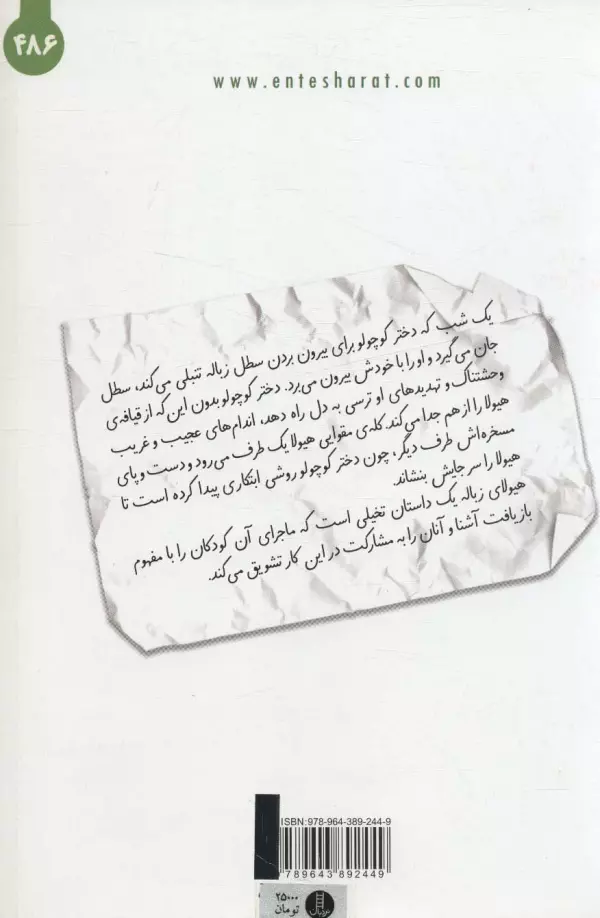 ۴۸۶
www.entesharat.com
یک شب که دختر کوچولو برای بیرون بردن سطل زباله تنبلی می‌کند، سطل
جان می‌گیرد و او را با خودش بیرون می‌برد. دختر کوچولو بدون این که از قیافه‌ی
وحشتناک و تهدیدهای او ترسی به دل راه دهد، اندام‌های عجیب و غریب
هیولا را از هم جدا می‌کند. کله‌ی مقوایی هیولا یک طرف می‌رود و دست و پای
مسخره‌اش طرف دیگر، چون دختر کوچولو روشی ابتکاری پیدا کرده است تا
هیولا را سر جایش بنشاند.
هیولای زباله یک داستان تخیلی است که ماجرای آن کودکان را با مفهوم
بازیافت آشنا و آنان را به مشارکت در این کار تشویق می‌کند.
ISBN: 978-964-389-244-9
789643892449
۲۵۰۰۰
تومان